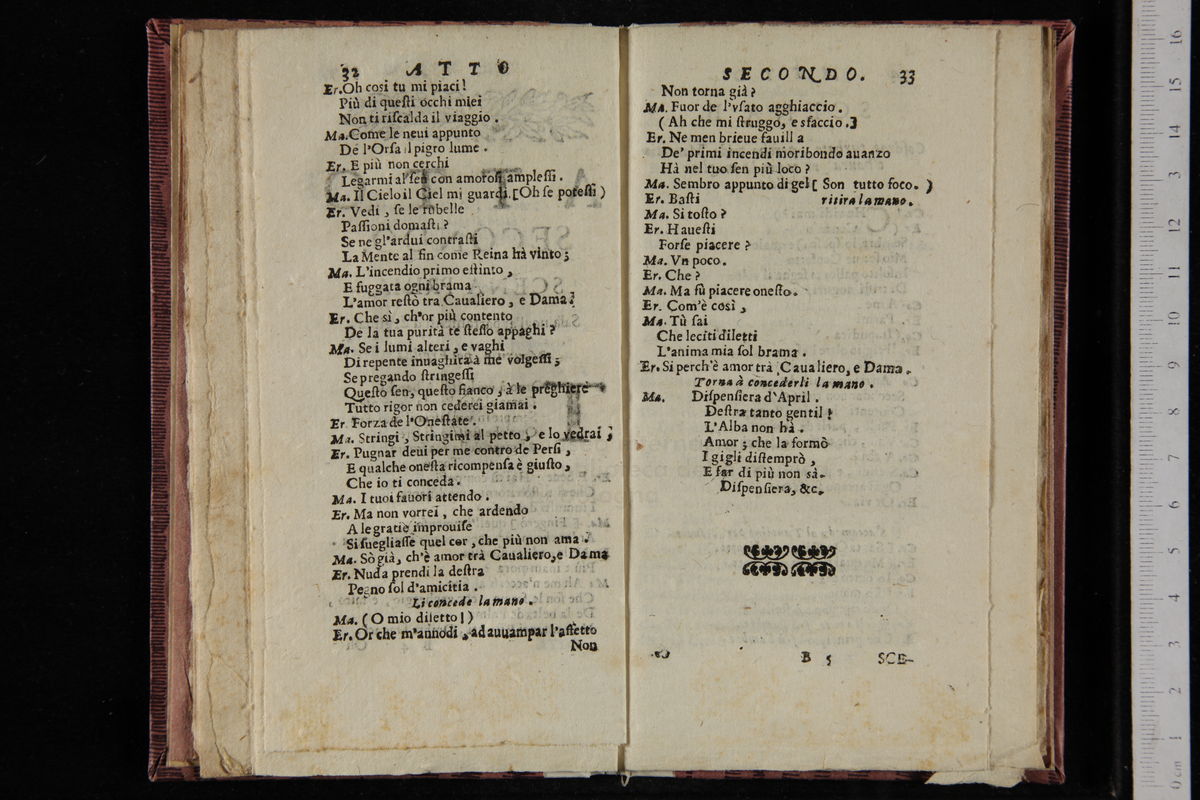 32 ATTO
Er. Oh cosi tu mi piaci!
Più di questi occhi miei
Non ti riscalda il viaggio.
Ma. Come le neui appunto
De l'Orsa il pigro lume.
Er. E più non cerchi
Legarmi al sen con amorosi amplessi.
Ma. Il Cielo il Ciel mi guardi. [Oh se potessi)
Er. Vedi, se le rubelle
Passioni domasti?
Se ne gl'ardui contrasti
La Mente al fin come Reina hà vinto;
Ma. L'incendio primo estinto,
E fuggata ogni brama
L'amor restò tra Caualiero, e Dama?
Er. Che sì, ch'or più contento
De la tua purità te stesso appaghi?
Ma. Se i lumi alteri, e vaghi
Di repente inuaghita à me volgessi;
Se pregando stringessi
Questo sen, questo fianco, à le preghiere
Tutto rigor non cederei giamai.
Er. Forza de l'Onestate.
Ma. Stringi, Stringimi al petto, e lo vedrai;
Er. Pugnar deui per me contro de Persi,
E qualche onesta ricompensa è giusto,
Che io ti conceda.
Ma. I tuoi fauori attendo.
Er. Ma non vorrei, che ardendo
A le gratie improuise
Si suegliasse quel cor, che più non ama.
Ma. Sò già, ch'è amor trà Caualiero, e Dama
Er. Nuda prendi la destra
Pegno sol d'amicitia.
Li concede la mano.
Ma. (O mio diletto!)
Er. Or che m'annodi, ad auuampar l'affetto
Non
SECONDO. 33
Non torna già?
Ma. Fuor de l'vsato agghiaccio.
(Ah che mi struggo, e sfaccio.]
Er. Ne men brieue fauilla
De' primi incendi moribondo auanzo
Hà nel tuo sen più loco?
Ma. Sembro appunto di gel [ Son tutto foco. )
Er. Basti ritira la mano.
Ma. Si tosto?
Er. Hauesti
Forse piacere?
Ma. Vn poco.
Er. Che?
Ma. Ma fù piacere onesto.
Er. Com'è così,
Ma. Tù sai
Che leciti diletti
L'anima mia sol brama.
Er. Si perch'è amor trà Caualiero, e Dama.
Torna à concederli la mano.
Ma. Dispensiera d'April.
Destra tanto gentil!
L'Alba non hà.
Amor; che la formò
I gigli distemprò,
E far di più non sà.
Dispensiera, &c.
B 5 SCE-